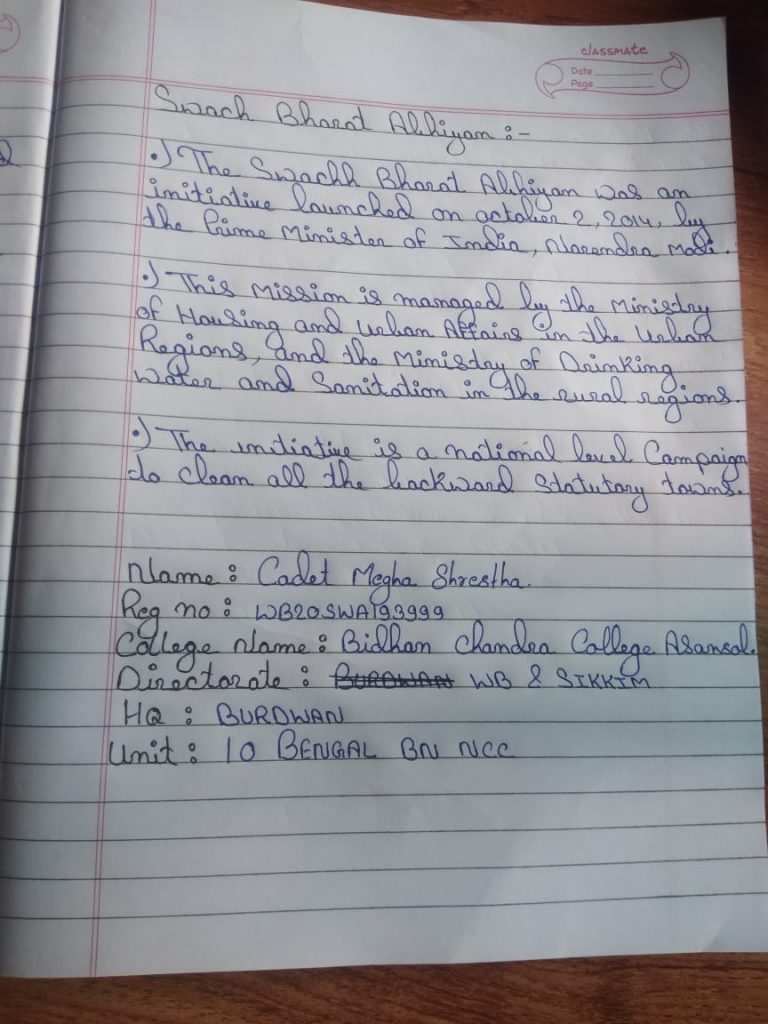 classmate
Date
Page
Swach Bharat Abhiyan :-
•) The Swachh Bharat Abhiyan was an
initiative launched on october 2, 2014, by
the Prime Minister of India, Narendra Modi.
•) This mission is managed by the Ministry
of Housing and Urban Affairs in the Urban
Regions, and the Ministry of Drinking
Water and Sanitation in the rural regions.
•) The initiative is a national level Campaign
to clean all the backward Statutory towns.
Name : Cadet Megha Shrestha.
Reg no : WB20SWA193999
College Name : Bidhan Chandra College Asansol.
Directorate : BURDWAN WB & SIKKIM
HQ : BURDWAN
Unit : 10 BENGAL BN NCC